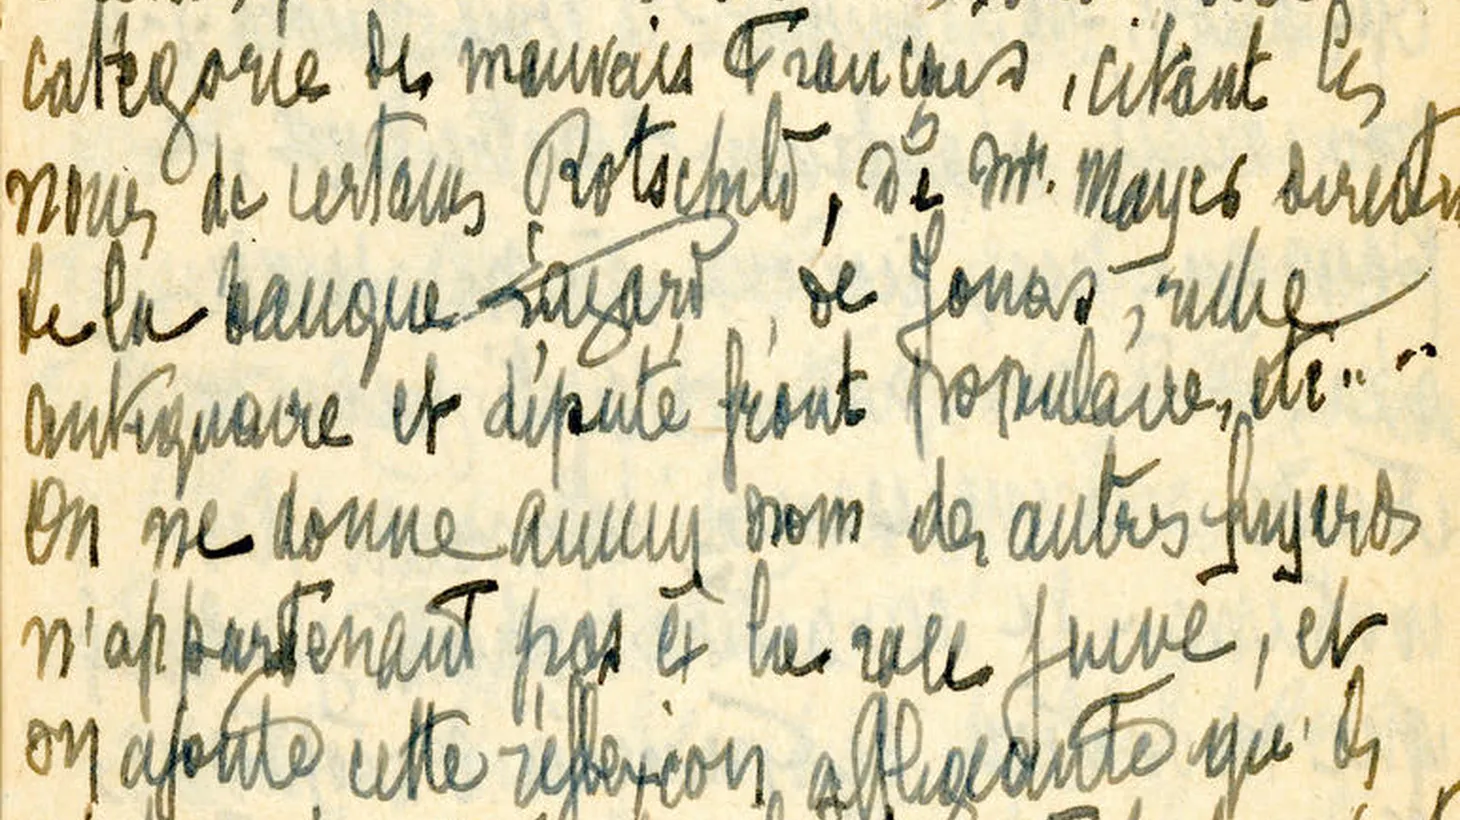 catégorie de mauvais Français, citant les
noms de certains Rotschild, de Mr. Mayer directeur
de la banque Lazard, de Jonas, riche
antiquaire et député front populaire, etc...
On ne donne aucun nom des autres fuyards
n'appartenant pas à la race juive, et
on ajoute cette réflexion affligeante qu'ils